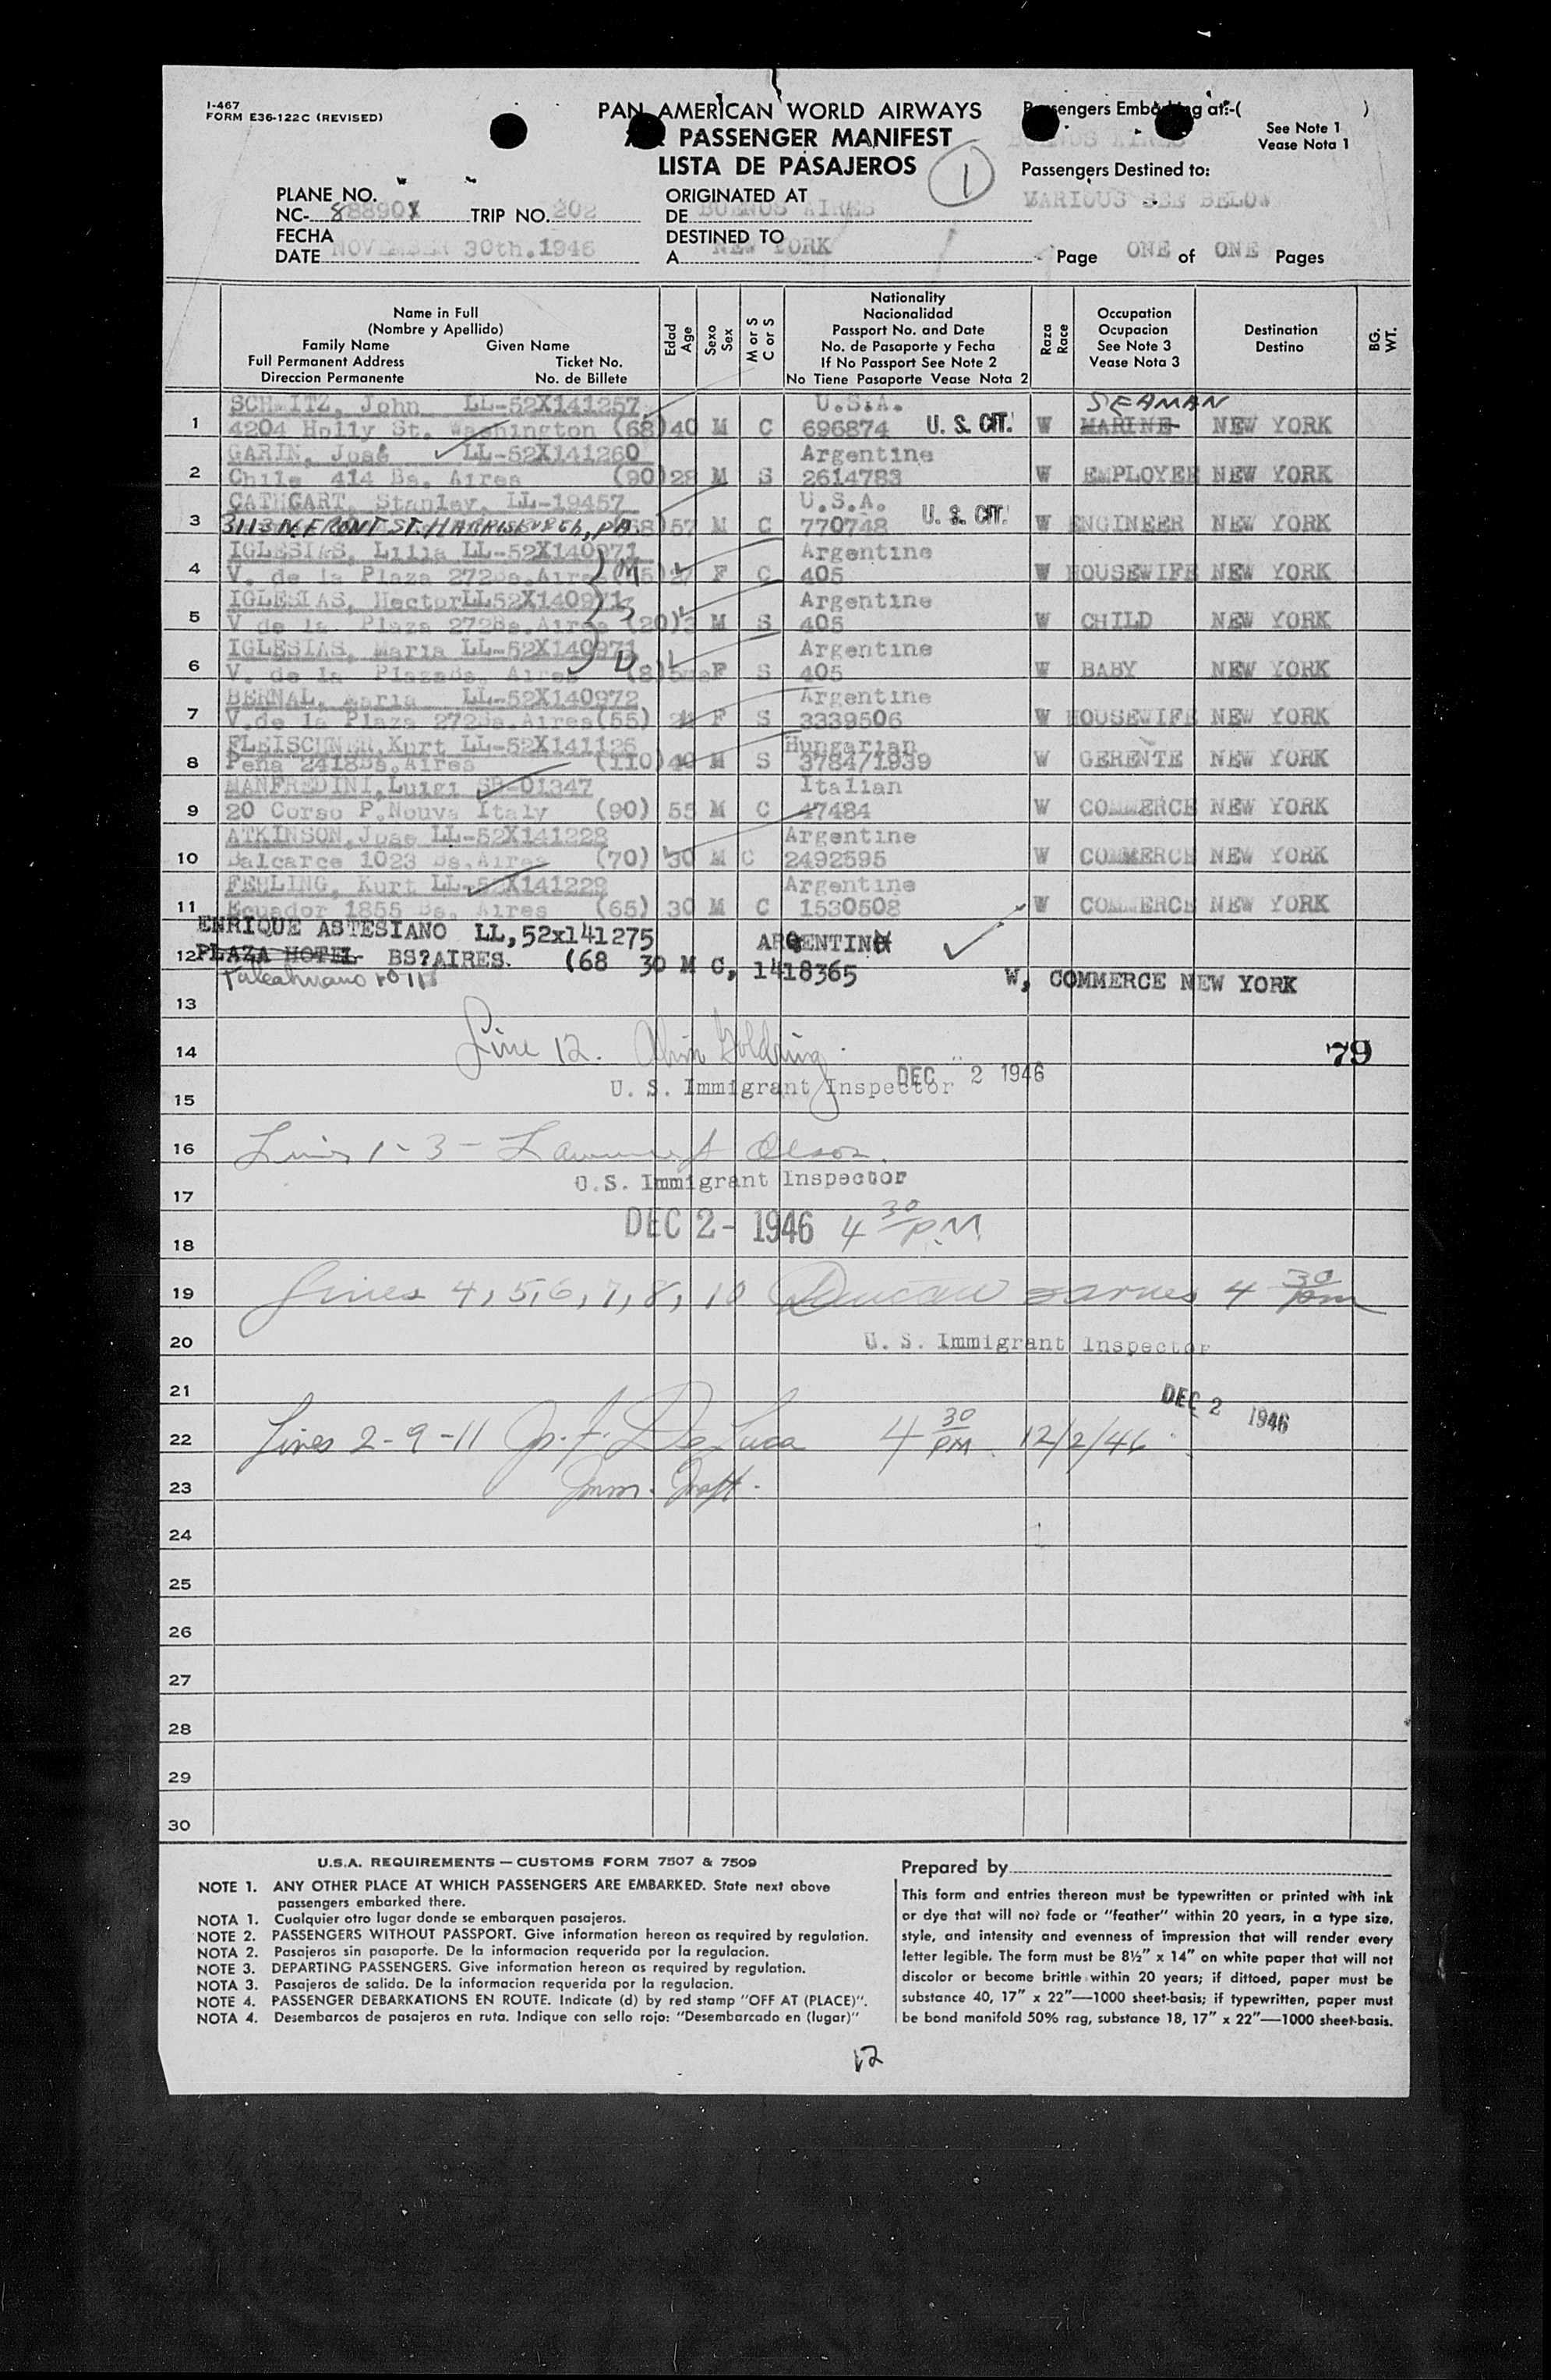 I-467
FORM E36-122C (REVISED)
PAN AMERICAN WORLD AIRWAYS
PASSENGER MANIFEST
LISTA DE PASAJEROS
1
Passengers Embarking at:-( )
BUENOS AIRES
See Note 1
Vease Nota 1
Passengers Destined to:
VARIOUS SEE BELOW
PLANE NO.
NC- 88890 TRIP NO. 202
ORIGINATED AT
DE BUENOS AIRES
FECHA
DATE NOVEMBER 30th.1946
DESTINED TO
A NEW YORK
Page ONE of ONE Pages
Name in Full
(Nombre y Apellido)
Family Name Given Name
Full Permanent Address Ticket No.
Direccion Permanente No. de Billete
Edad
Age
Sexo
Sex
M or S
C or S
Nationality
Nacionalidad
Passport No. and Date
No. de Pasaporte y Fecha
If No Passport See Note 2
No Tiene Pasaporte Vease Nota 2
Raza
Race
Occupation
Ocupacion
See Note 3
Vease Nota 3
Destination
Destino
BG.
WT.
SCHMITZ, John LL-52X141257 U.S.A. SEAMAN
1 4204 Holly St. Washington (68) 40 M C 696874 U. S. CIT. W MARINE NEW YORK
GARIN, José LL-52X141260 Argentine
2 Chile 414 Bs. Aires (90) 28 M S 2614783 W EMPLOYER NEW YORK
CATHCART, Stanley, LL-19457 U.S.A.
3 3113 N. FRONT ST. HARRISBURGH, PA 57 M C 770748 U. S. CIT. W ENGINEER NEW YORK
IGLESIAS, Lilia LL-52X140971 Argentine
4 V. de la Plaza 272Bs.Aires M F C 405 W HOUSEWIFE NEW YORK
IGLESIAS, HectorLL52X140971 Argentine
5 V de la Plaza 272Bs.Aires (20) 3 M S 405 W CHILD NEW YORK
IGLESIAS, Maria LL-52X140971 Argentine
6 V. de la PlazaBs. Aires D (8) F S 405 W BABY NEW YORK
BERNAL, Maria LL-52X140972 Argentine
7 V.de la Plaza 272Bs.Aires(55) F S 3339506 W HOUSEWIFE NEW YORK
FLEISCHNER,Kurt LL-52X141126 Hungarian
8 Peña 2418Bs.Aires (110) 40 M S 3784/1939 W GERENTE NEW YORK
MANFREDINI,Luigi SP-01347 Italian
9 20 Corso P.Nouva Italy (90) 55 M C 47484 W COMMERCE NEW YORK
ATKINSON,Jose LL-52X141228 Argentine
10 Balcarce 1023 Bs.Aires (70) 30 M C 2492595 W COMMERCE NEW YORK
FEHLING, Kurt LL-52X141229 Argentine
11 Ecuador 1855 Bs. Aires (65) 30 M C 1530508 W COMMERCE NEW YORK
ENRIQUE ASTESIANO LL,52x141275 ARGENTINE
12 PLAZA HOTEL BS?AIRES. (68 30 M C, 1418365 W, COMMERCE NEW YORK
13
14 Line 12. Goldring 79
U. S. Immigrant Inspector DEC 2 1946
15
16 Lines 1-3- Olson
U.S. Immigrant Inspector
17
DEC 2- 1946 4 30 P.M
18
19 Lines 4,5,6,7,8,10 Duncan 4 30 pm
20 U. S. Immigrant Inspector
21 DEC 2 1946
22 Lines 2-9-11 De Luca 4 30 PM 12/2/46
23 Imm. Insp't.
24
25
26
27
28
29
30
U.S.A. REQUIREMENTS — CUSTOMS FORM 7507 & 7509
NOTE 1. ANY OTHER PLACE AT WHICH PASSENGERS ARE EMBARKED. State next above
passengers embarked there.
NOTA 1. Cualquier otro lugar donde se embarquen pasajeros.
NOTE 2. PASSENGERS WITHOUT PASSPORT. Give information hereon as required by regulation.
NOTA 2. Pasajeros sin pasaporte. De la informacion requerida por la regulacion.
NOTE 3. DEPARTING PASSENGERS. Give information hereon as required by regulation.
NOTA 3. Pasajeros de salida. De la informacion requerida por la regulacion.
NOTE 4. PASSENGER DEBARKATIONS EN ROUTE. Indicate (d) by red stamp "OFF AT (PLACE)".
NOTA 4. Desembarcos de pasajeros en ruta. Indique con sello rojo: "Desembarcado en (lugar)"
Prepared by
This form and entries thereon must be typewritten or printed with ink
or dye that will not fade or "feather" within 20 years, in a type size,
style, and intensity and evenness of impression that will render every
letter legible. The form must be 8½" x 14" on white paper that will not
discolor or become brittle within 20 years; if dittoed, paper must be
substance 40, 17" x 22"—1000 sheet-basis; if typewritten, paper must
be bond manifold 50% rag, substance 18, 17" x 22"—1000 sheet-basis.
12